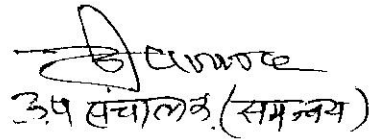 उप संचालक (समन्वय)